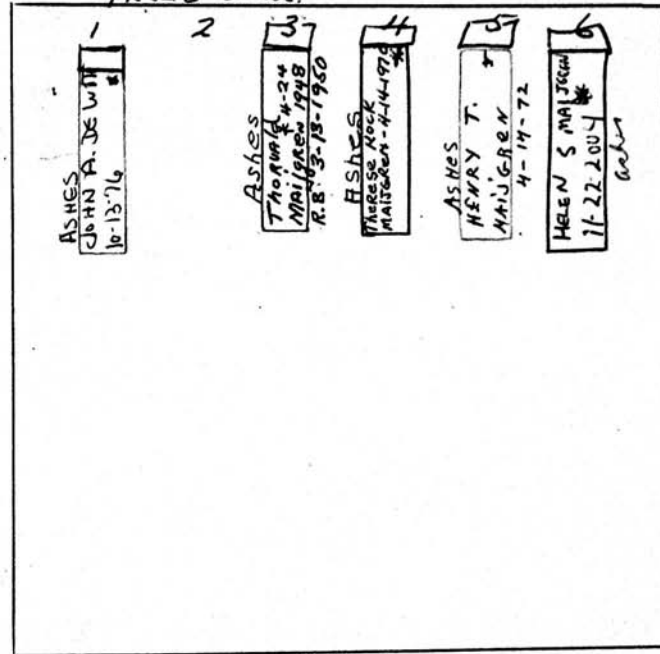 1 2 3 4 5 6
ASHES
JOHN A. DE WITT
10-13-76
Ashes
THORVALD
MAIJGREN 1948
4-24
R.B. 3-13-1950
ASHES
THERESE MOCK
MAIJGREN-4-14-1970
ASHES
HENRY T.
MAIJGREN
4-14-72
HELEN S MAIJGREN
11-22-2004
ashes